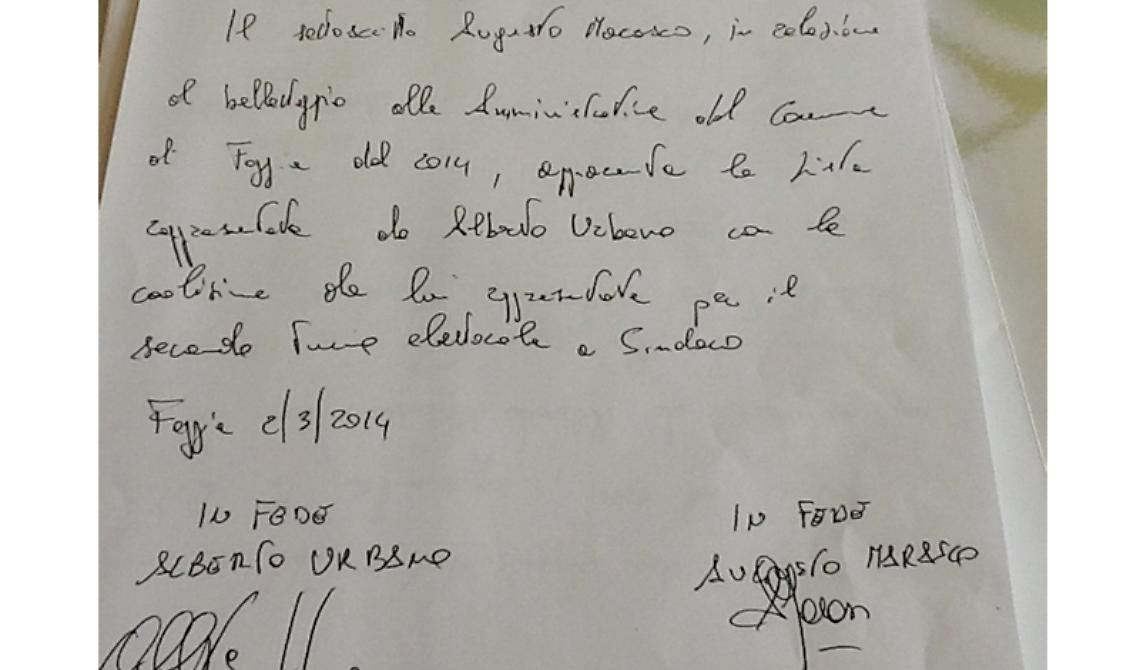 Il sottoscritto Augusto Marasco, in relazione
al ballottaggio alle Amministrative del Comune
di Foggia del 2014, apparenta la Lista
rappresentata da Alberto Urbano con la
coalizione da lui rappresentata per il
secondo turno elettorale a Sindaco
Foggia 2/3/2014
IN FEDE
ALBERTO URBANO
IN FEDE
AUGUSTO MARASCO